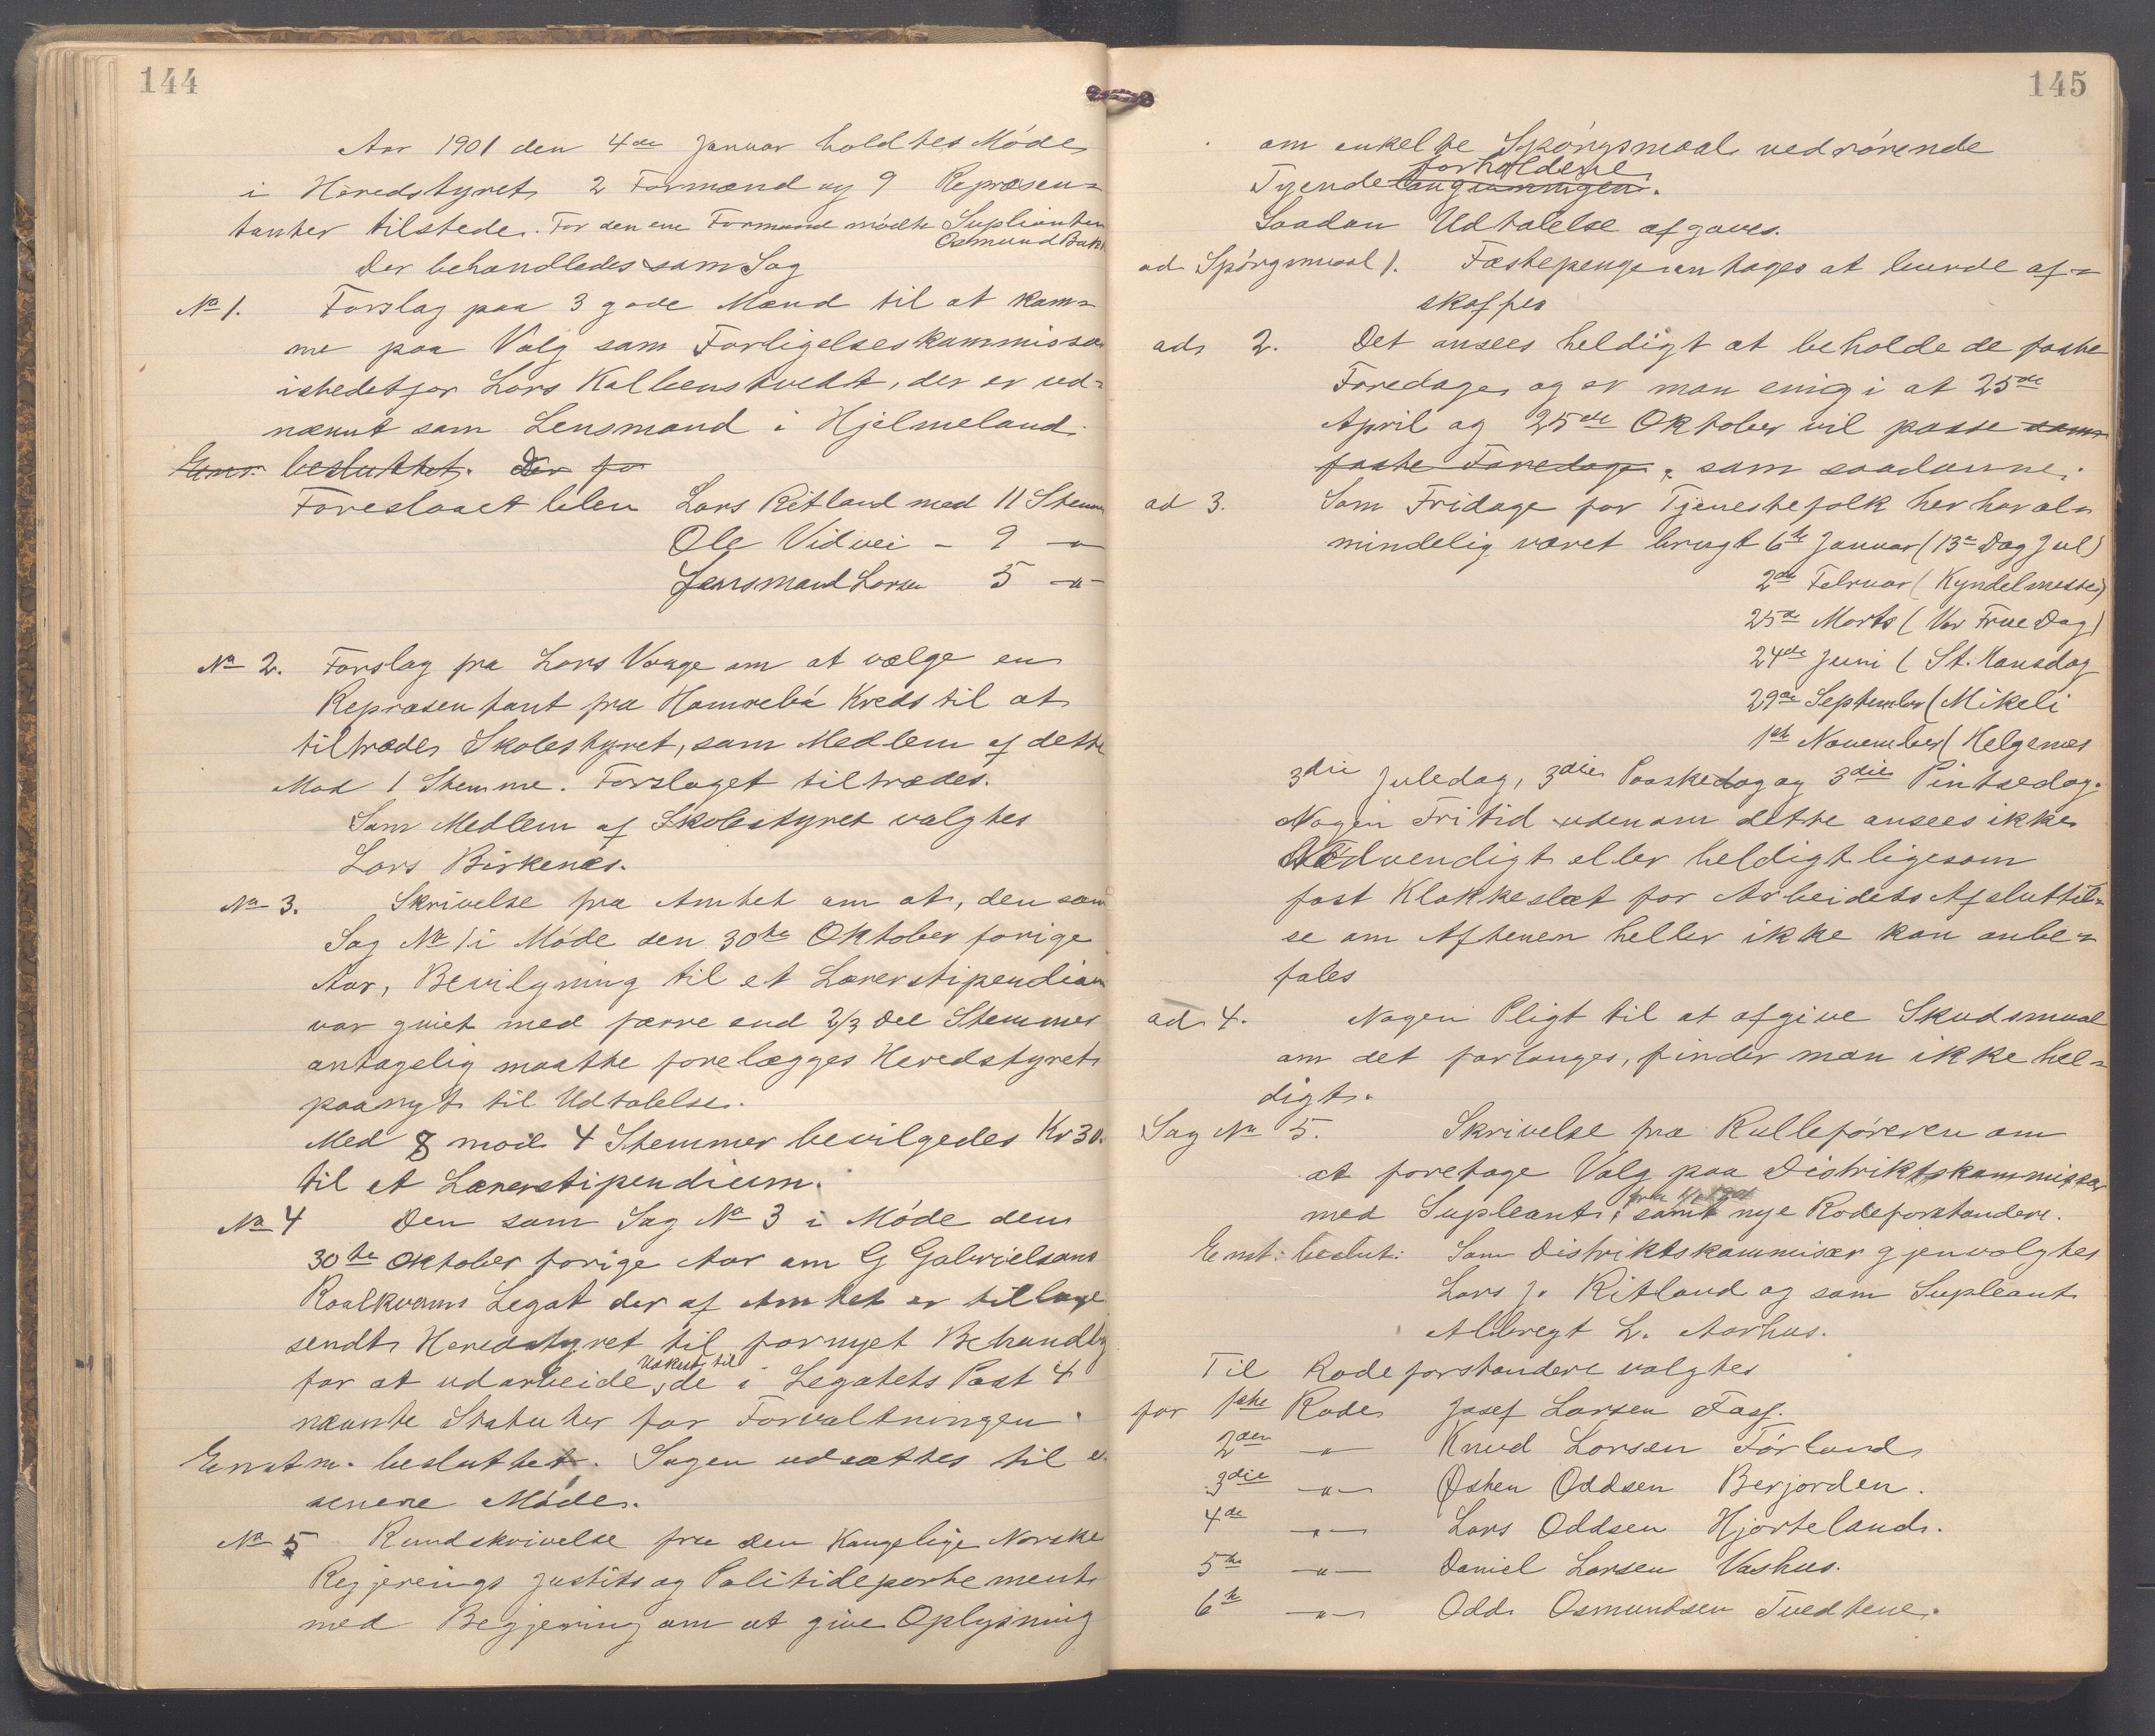 144
Aar 1901 den 4de Januar holdtes Møde
i Heredstyret 2 Formænd og 9 Repræsen=
tanter tilstede. For den ene Formand mødte Suplianten
Osmund Bakk
Der behandledes som Sag
No 1. Forslag paa 3 gode Mænd til at kom=
me paa Valg som Forligelseskommissær
istedetfor Lars Kallenstvedt, der er ud=
nævnt som Lensmand i Hjelmeland.
Enst. besluttet. Der fo
Foreslaaet blev Lars Ritland med 11 Stem
Ole Vidvei - 9 -"-
Lensmand Larsen 5 -"-
No 2. Forslag fra Lars Vaage om at vælge en
Repræsentant fra Hamrebø Kreds til at
tiltræde Skolestyret, som Medlem af dette
Mod 1 Stemme. Forslaget tiltrædes.
Som Medlem af Skolestyret valgtes
Lars Birkenæs.
No 3. Skrivelse fra Amtet om at, den som
Sag No 1 i Møde den 30te Oktober forige
Aar, Bevilgning til et Lærerstipendium
var givet med færre end 2/3 Del Stemmer
antagelig maatte forelægges Heredstyret
paanyt til Udtalelse.
Med 8 mod 4 Stemmer bevilgedes Kr 30.
til et Lærerstipendium.
No 4 Den som Sag No 3 i Møde den
30te Oktober forige Aar om G Gabrielsens
Raalkvams Legat der af Amtet er tilbage
sendt Heredstyret til fornyet Behandlg
for at udarbeide, Udkast til de i Legatets Post 4
nævnte Statuter for Forvaltningen.
Enstm. besluttet. Sagen udsættes til e.
senere Møde.
No 5 Rundskrivelse fra den Kongelige Norske
Regjerings Justits og Politidepartement
med Begjæring om at give Oplysning
145
om enkelte Spørgsmaal vedrørende
forholdene
Tyende.
Saadan Udtalelse afgaves.
ad Spørgsmaal 1. Fæstepenge antages at burde af=
skaffes
ad 2. Det ansees heldigt at beholde de faste
Faredage og er man enig i at 25de
April og 25de Oktober vil passe som
faste Faredage, som saadanne.
ad 3. Som Fridage for Tjenestefolk her har al=
mindelig været brugt 6te Januar (13de Dag Jul)
2den Februar (Kyndelmesse)
25de Marts (Vor Frue Dag)
24de Juni (St. Hansdag
29de September (Mikeli
1ste November (Helgemes
3die Juledag, 3die Paaskedag og 3die Pintsedag.
Nogen Fritid udenom dette ansees ikke
Nødvendigt eller heldigt ligesom
fast Klokkeslæt for Arbeidets Afsluttel=
se om Aftenen heller ikke kan anbe=
fales
ad 4. Nogen Pligt til at afgive Skudsmaal
om det forlanges, finder man ikke hel=
digt.
Sag No 5. Skrivelse fra Rulleføreren om
at foretage Valg paa Distriktskommissær
med Supleant, samt nye Rodeforstandere.
Enst: beslut: Som Distriktskommisær gjenvalgtes
Lars J. Ritland og som Supleant
Albregt L. Aarhus.
Til Rodeforstandere valgtes
for 1ste Rode Josef Larsen Fasf.
2den -"- Knud Larsen Førland
3die -"- Østen Oddsen Berjorden.
4de -"- Lars Oddsen Hjorteland.
5te -"- Daniel Larsen Vashus.
6te -"- Odd Osmundsen Tvedtene.